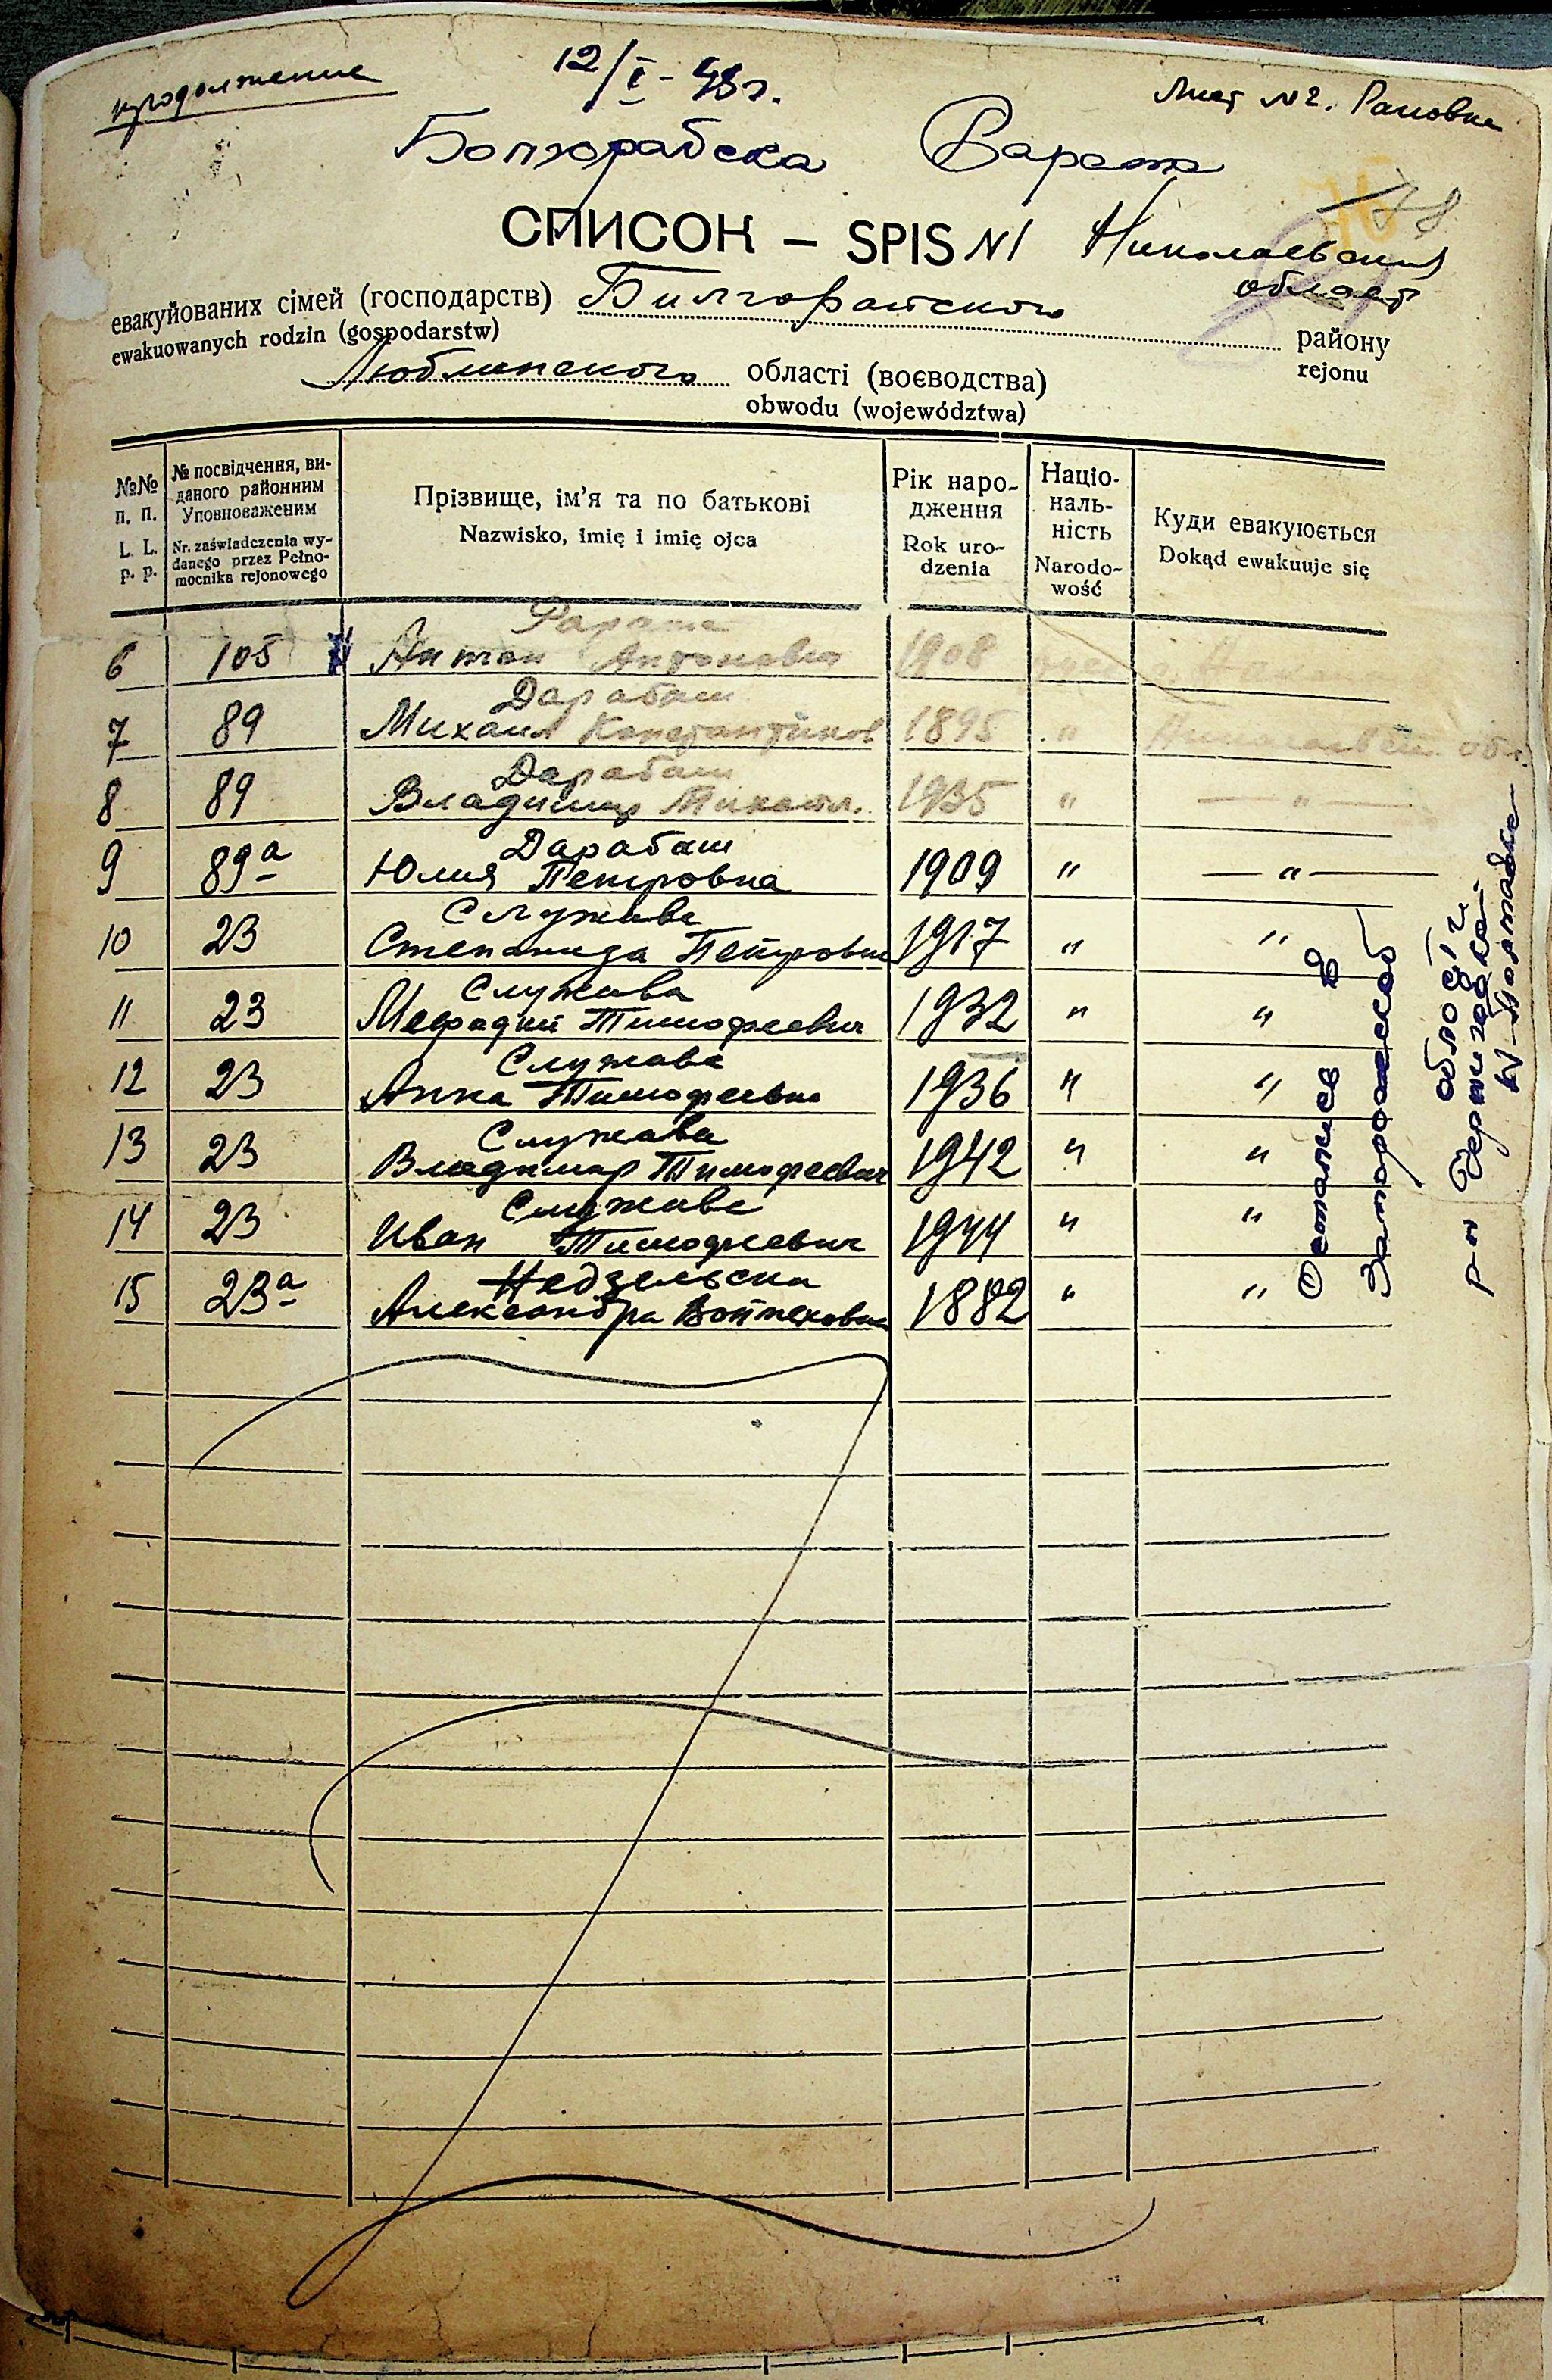 продолжение
12/I-48г.
Лист №2.
СПИСОК — SPIS №1
Николаевская
област
евакуйованих сімей (господарств) Билгорайского району
ewakuowanych rodzin (gospodarstw) rejonu
Люблинского області (воєводства)
obwodu (województwa)
№№ п. п. L. L. p. p.
№ посвідчення, виданого районним Уповноваженим
Nr. zaświadczenia wydanego przez Pełnomocnika rejonowego
Прізвище, ім'я та по батькові
Nazwisko, imię i imię ojca
Рік народження
Rok urodzenia
Національність
Narodowość
Куди евакуюється
Dokąd ewakuuje się
6 105 Антон Антонович 1908
Дарабаш
7 89 Михаил Константинов 1895 " Николаевск. обл.
Дарабаш
8 89 Владимир Михайл. 1935 " — " —
Дарабаш
9 89а Юлия Петровна 1909 " — " —
Служава
10 23 Степанида Петровна 1917 " "
Служава
11 23 Мефадий Тимофеевич 1932 " "
Служава
12 23 Анна Тимофеевна 1936 " "
Служава
13 23 Владимир Тимофеевич 1942 " "
Служава
14 23 Иван Тимофеевич 1944 " "
Недзельска
15 23а Александра Войтеховна 1882 " "
Остались в
облості
р-н